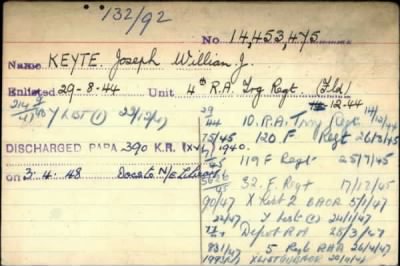 132/92
No. 14,453,475
Name KEYTE. Joseph William. J.
Enlisted 29-8-44 Unit 4th R.A. Trg Regt. (Fld)
14-12-44
Y List (1) 29/12/47
29/44 10. R.A. Trg Regt 14/12/44
75/45 120. F Regt 26/3/45
DISCHARGED PARA 390 K.R. (XVI) 1940.
45 119 F Regt 25/7/45
on 3.4.48
32. F. Regt 17/12/45
90/47 X List 2 BAOR 5/1/47
22/47 Y List (1) 24/1/47
Depot RA 25/3/47
931/47 5 Regt RHA 26/4/47